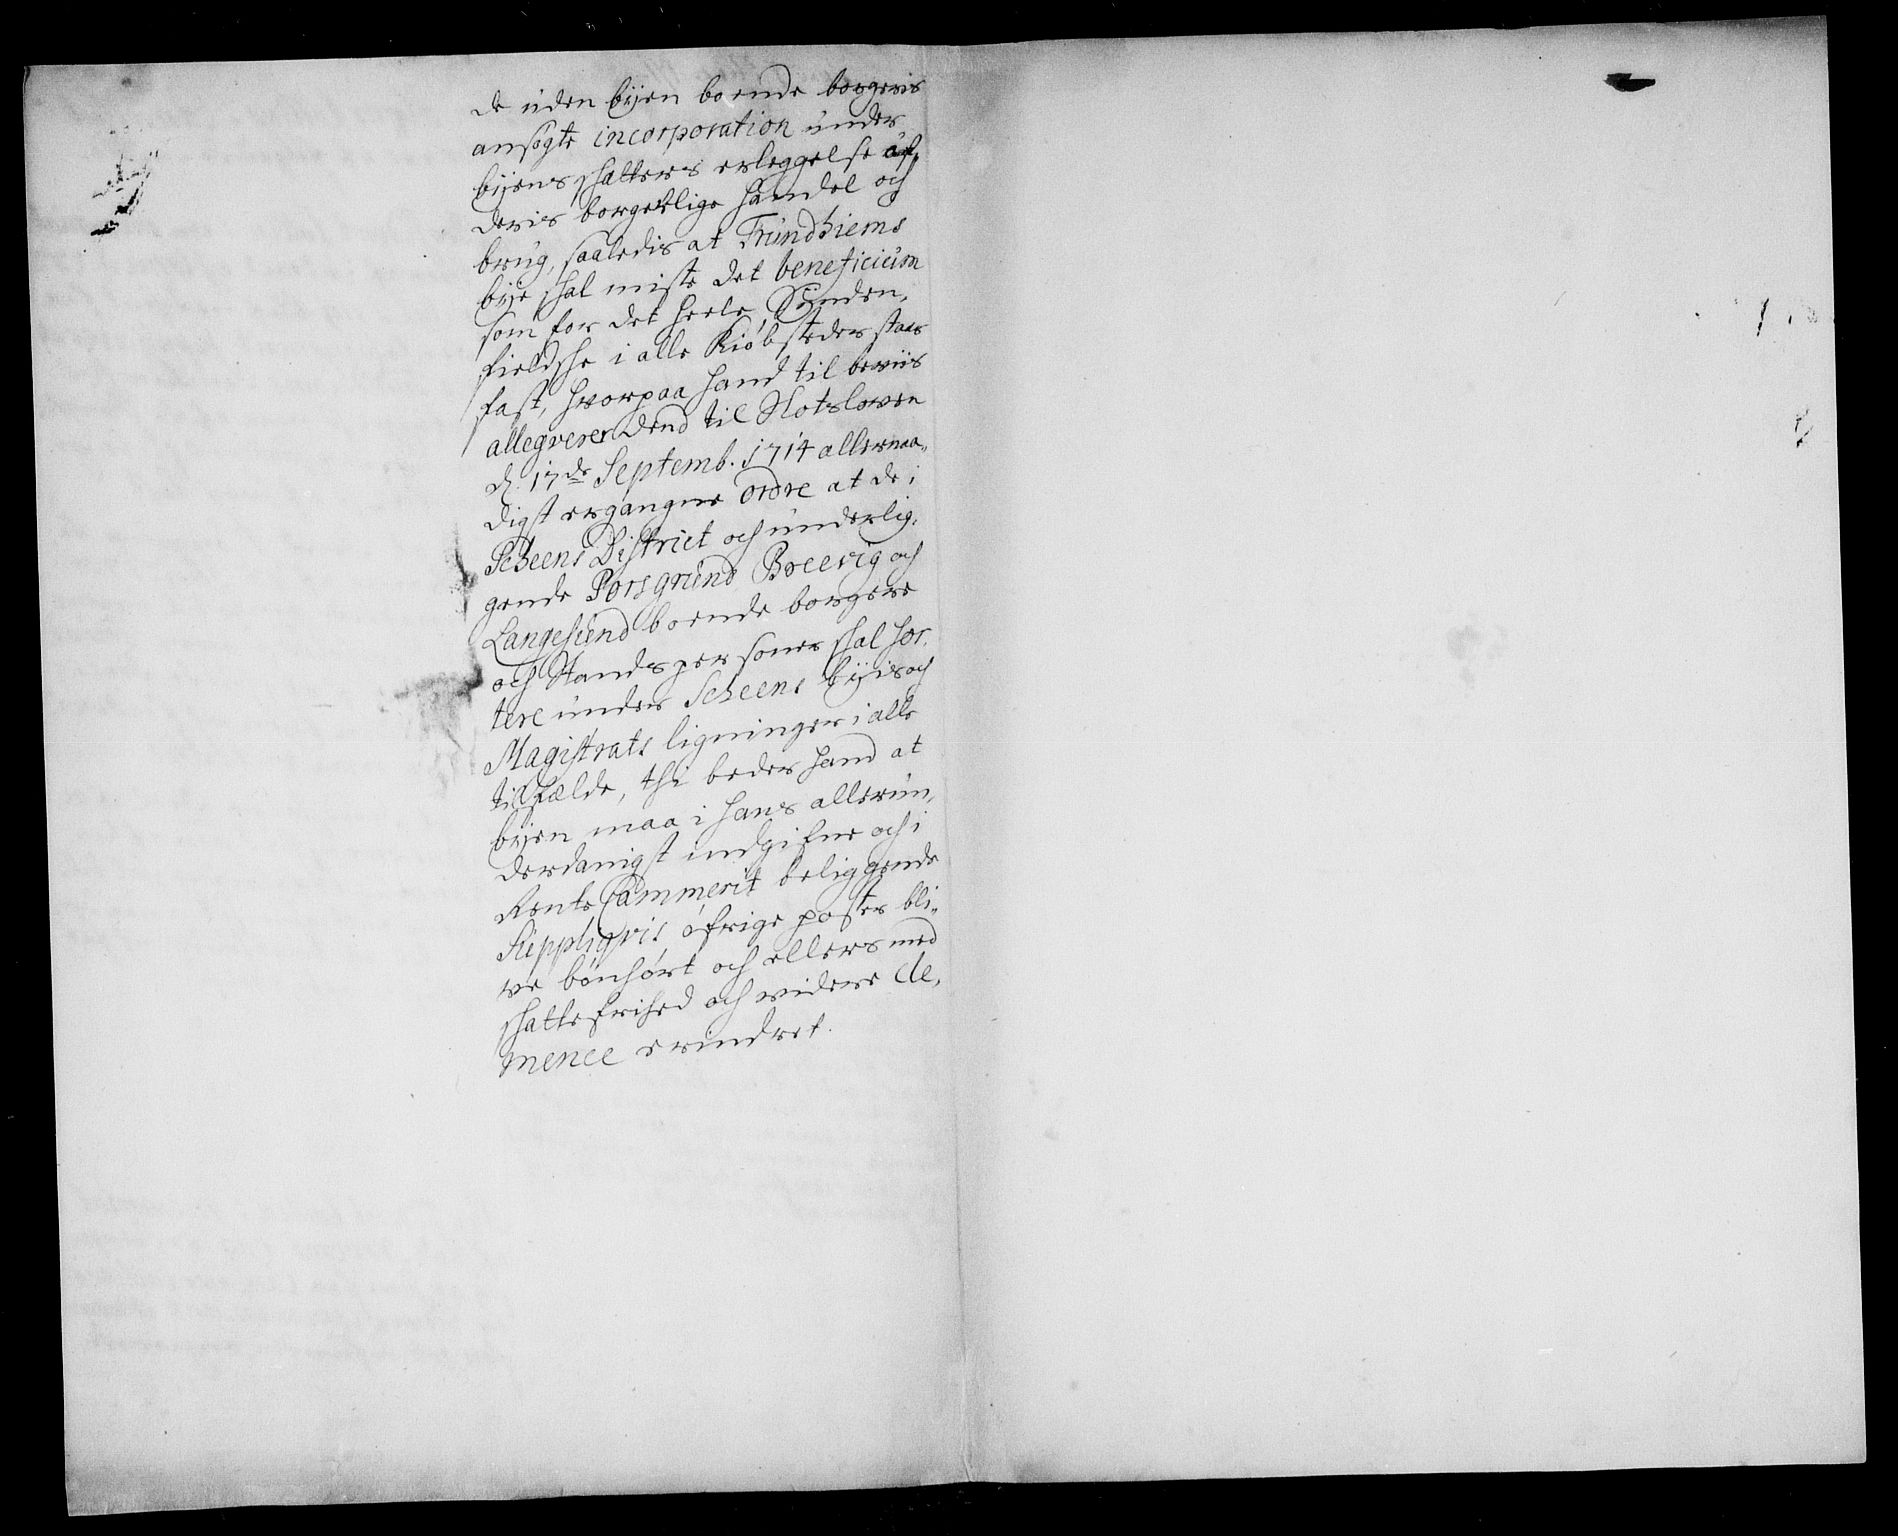 de uden byen boende borgeris
ansøgte incorporation under
byens skatters erleggelse af
deris borgerlige handel och
brug, saaledis at Trundhiems
bye skal miste det beneficium
som for det heele Synden,
fieldske i alle Kiøbsteder staar
fast, hvorpaa hand til beviis
allegverer dend til Slotsloven
d. 17de Septemb. 1714 allernaa„
digst ergangne Ordre at de i
Scheens District och underlig,
gende Porsgrund Breevig och
Langesund boende borgere
och Standspersoner skal sor,
tere under Scheens byis och
Magistrats ligninger i alle
tilfælde, thi beder hand at
byen maa i hans allerun,
derdanigst indgifne och i
Rente Cammerit beliggende
Suppliqvis øfrige poster bli„
ve bønhørt och ellers med
skattefrihed och videre cle,
mence erindret.